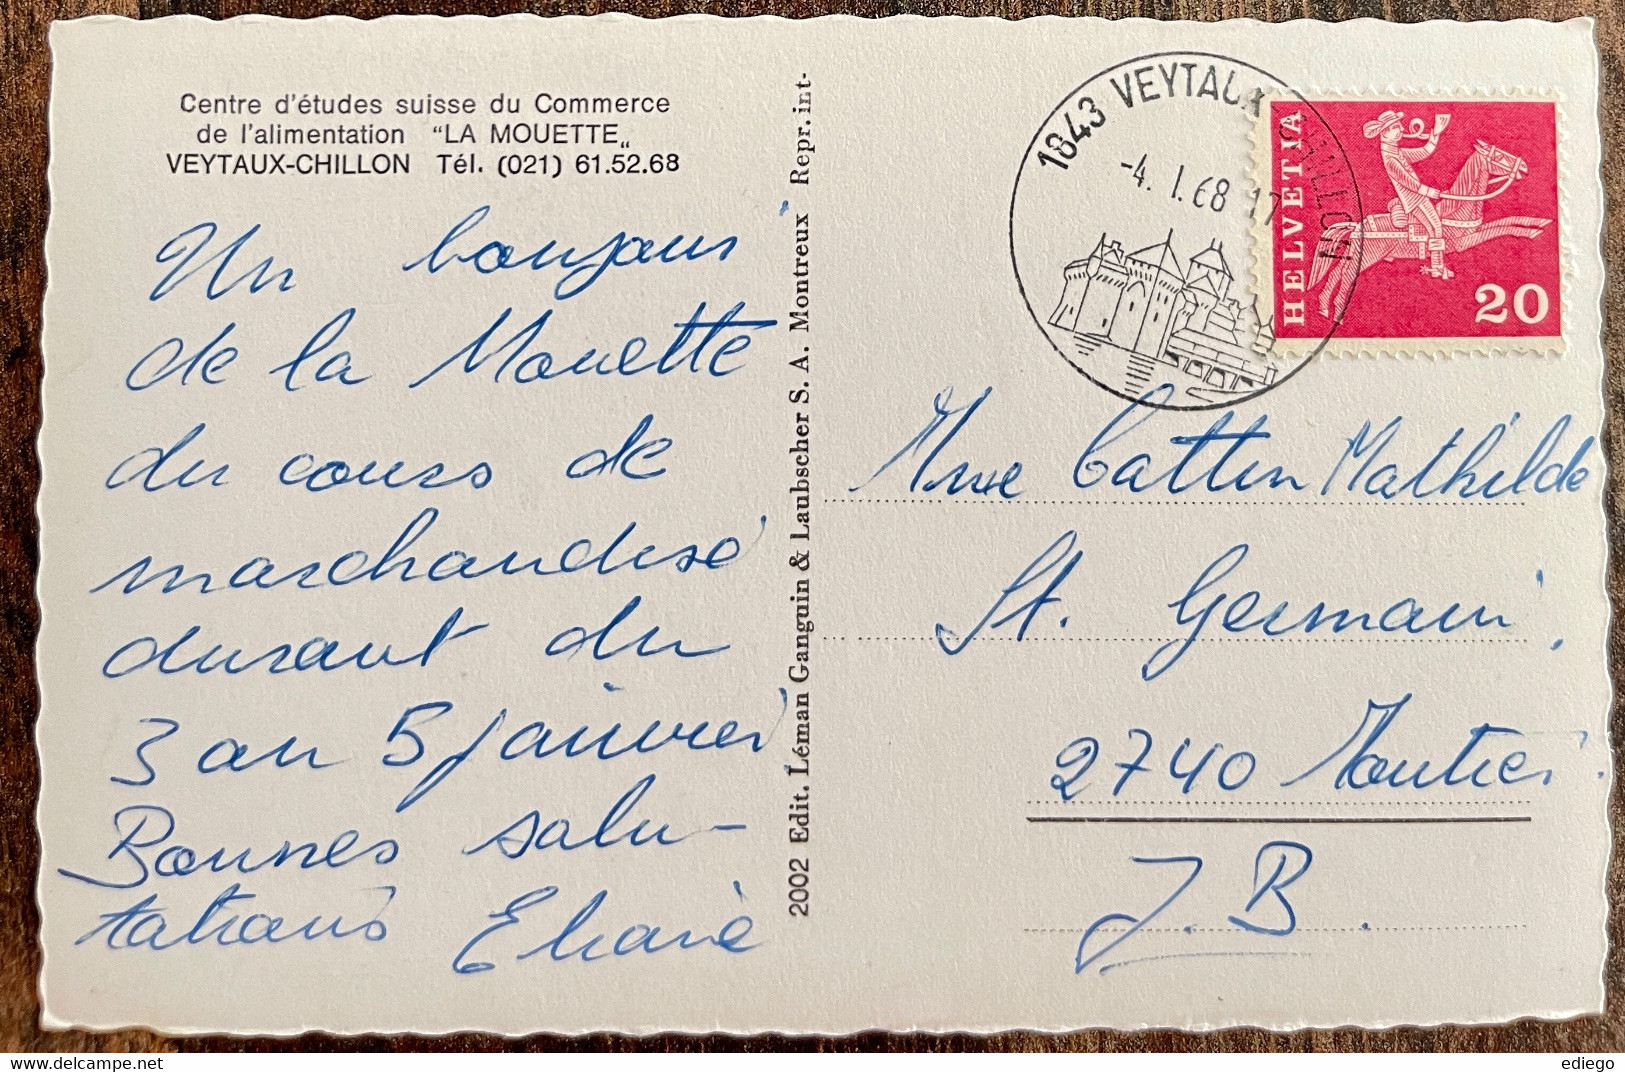 Centre d'études suisse du Commerce
de l'alimentation "LA MOUETTE„
VEYTAUX-CHILLON Tél. (021) 61.52.68
Un bonjour
de la Mouette
du cours de
marchandise
durant du
3 au 5 janvier
Bonnes salu-
tations Eliane
2002 Edit. Léman Ganguin & Laubscher S. A. Montreux Repr. int-
1843 VEYTAUX-CHILLON
-4. I. 68 17
HELVETIA
20
Mme Cattin Mathilde
St. Germain,
2740 Moutier.
J. B.
ediego